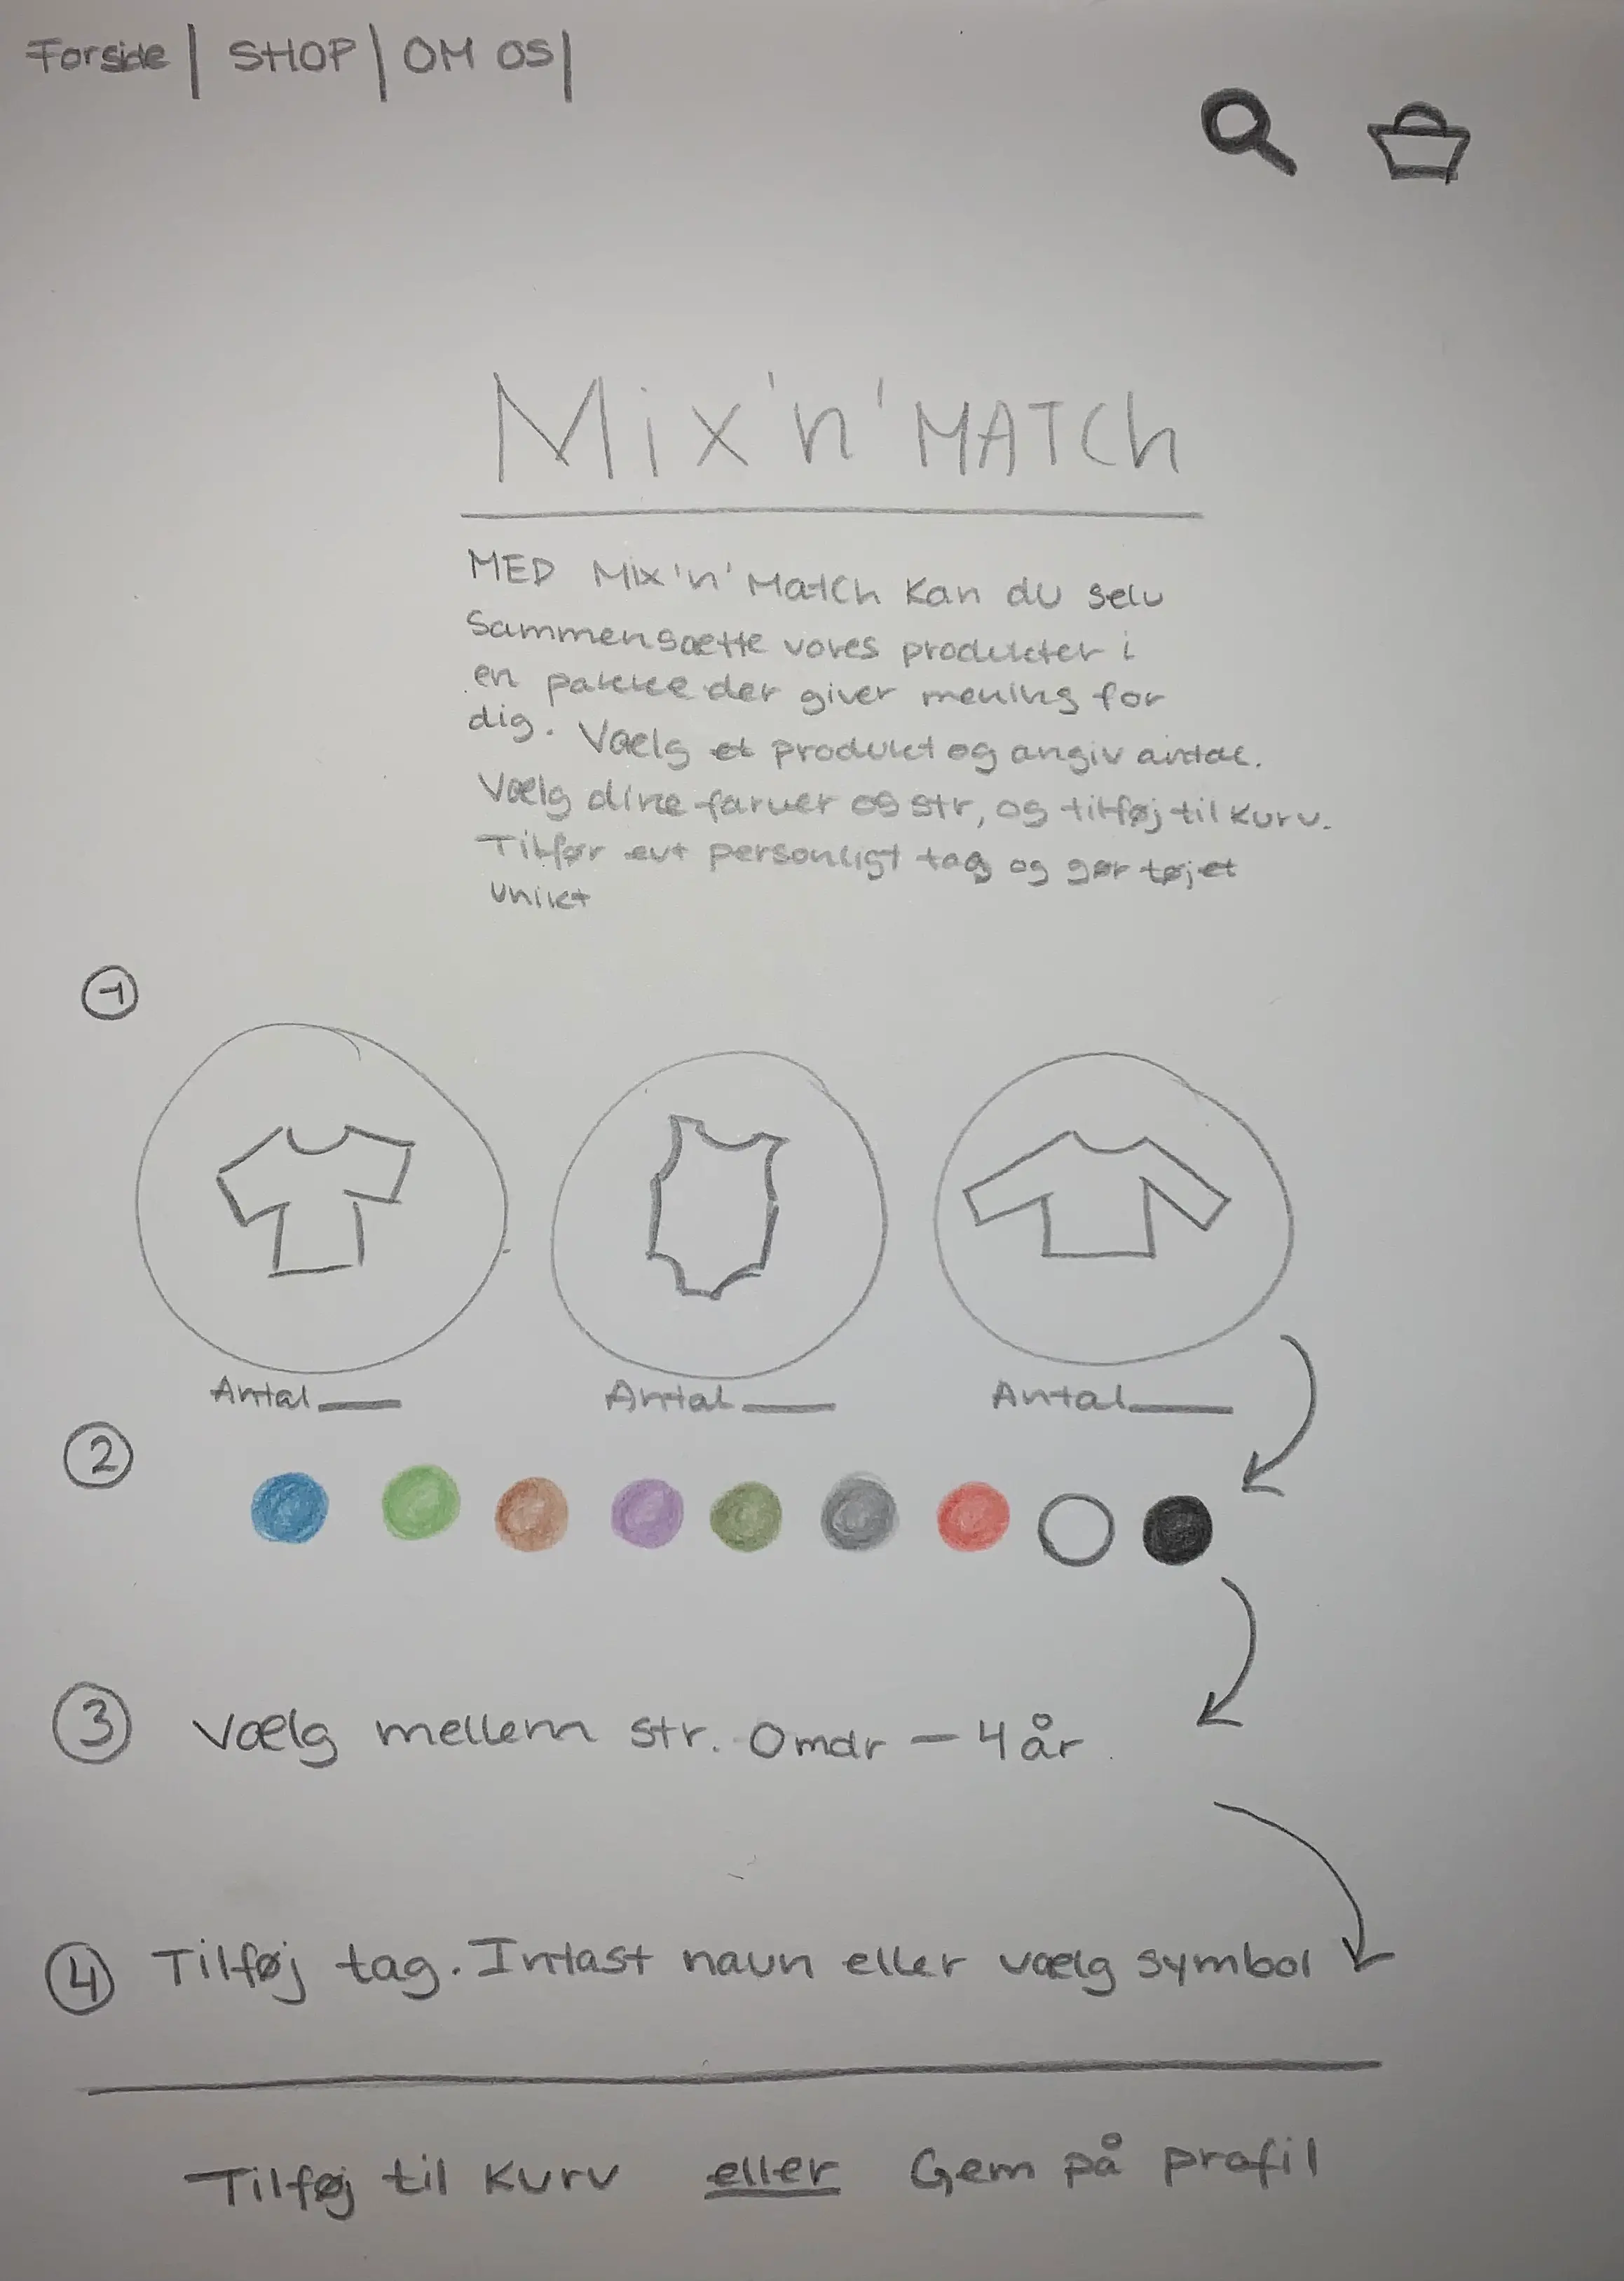 Forside | SHOP | OM OS |
Mix'n'MATCh
MED Mix'n'Match kan du selv
Sammensætte vores produkter i
en pakke der giver mening for
dig. Vælg et produkt og angiv antal.
Vælg dine farver og str, og tilføj til kurv.
Tilfør evt personligt tag og gør tøjet
unikt
1
Antal___ Antal___ Antal___
2
3 Vælg mellem str. 0mdr – 4 år
4 Tilføj tag. Intast navn eller vælg symbol
Tilføj til kurv eller Gem på profil